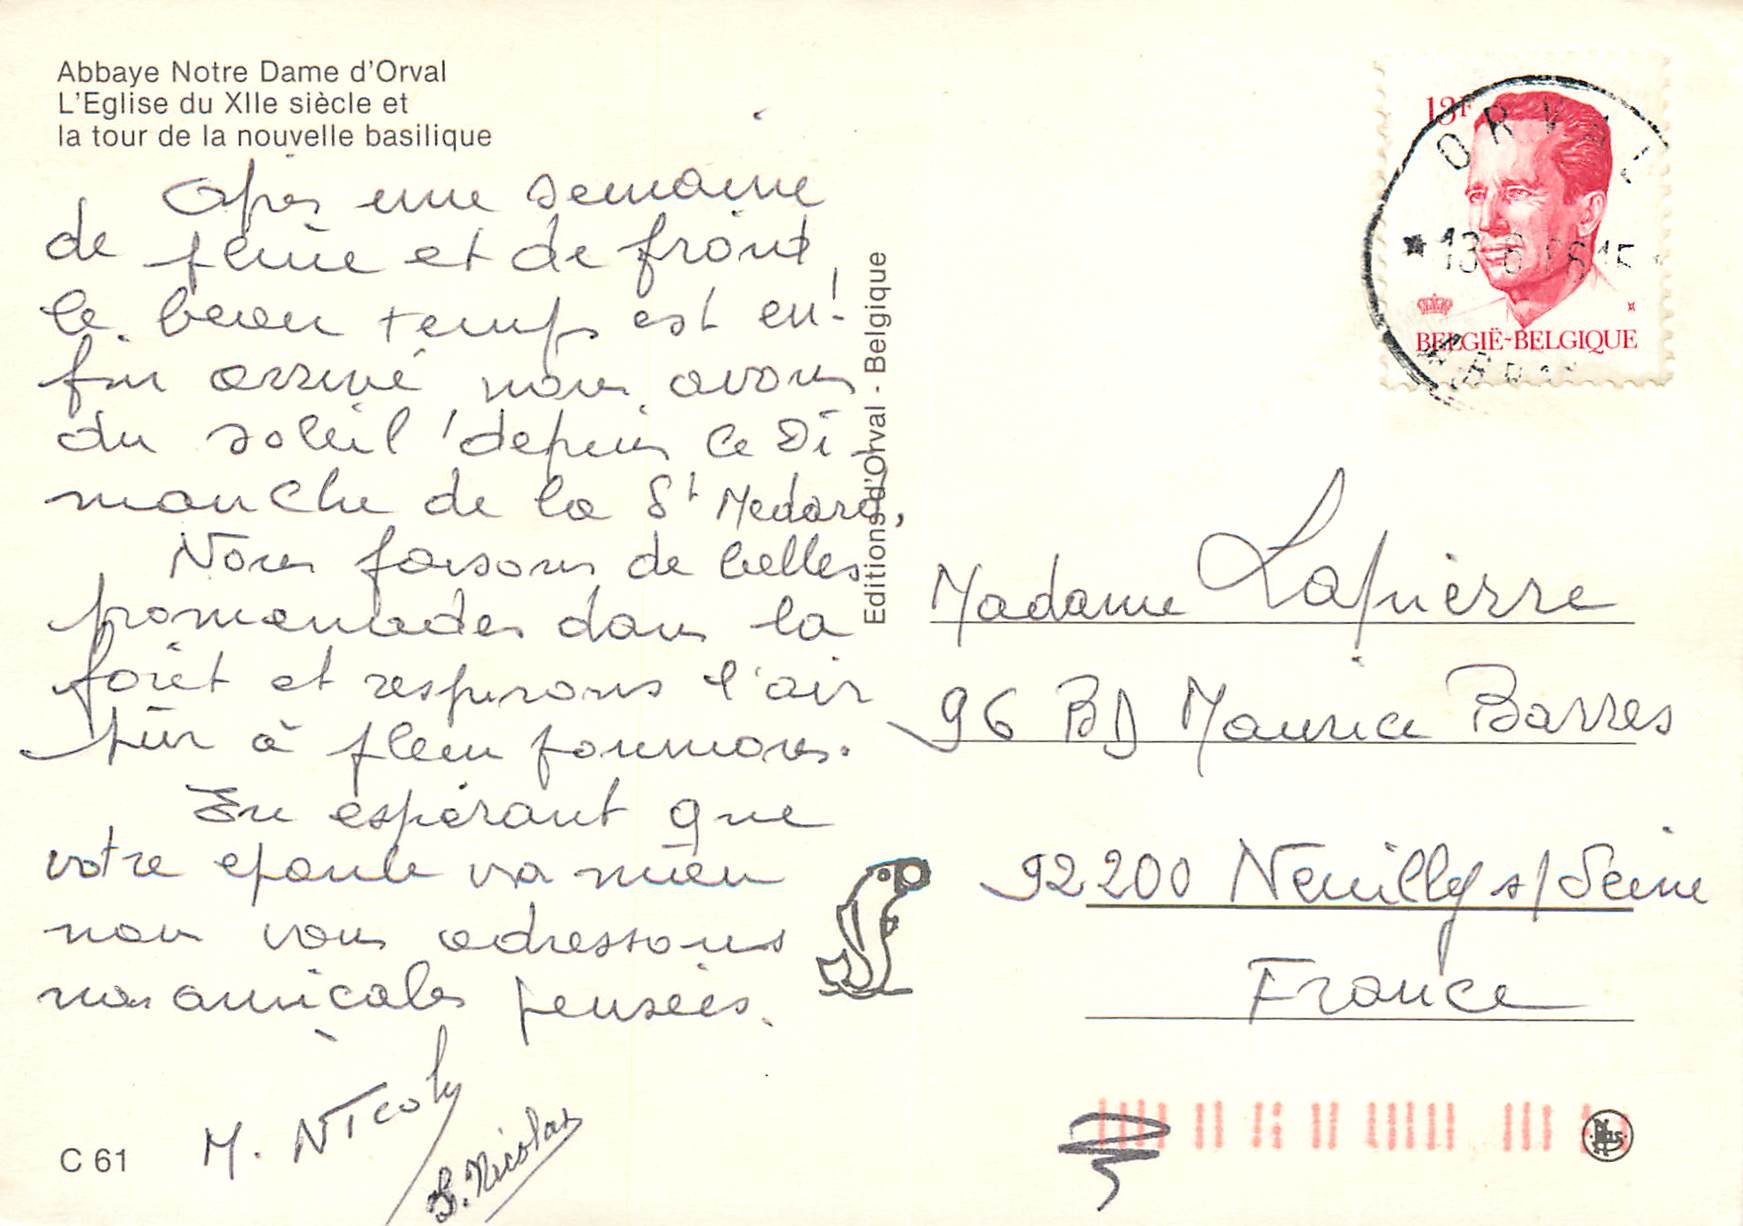 Abbaye Notre Dame d'Orval
L'Eglise du XIIe siècle et
la tour de la nouvelle basilique
Après une semaine
de pluie et de froid
le beau temps est en-
fin arrivé nous avons
du soleil depuis ce Di-
manche de la St Medard,
Nous faisons de belles
promenades dans la
forêt et respirons l'air
pur à plein poumons.
En espérant que
votre epaule va mieu
nous vous adressons
nos amicales pensées.
M. Nicolas
S. Nicolas
C 61
Editions d'Orval - Belgique
13F
BELGIË-BELGIQUE
ORVAL
13 6
Madame Lapierre
96 BD Maurice Barres
92200 Neuilly s/Seine
France